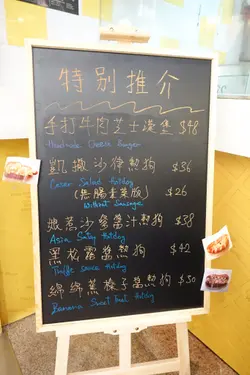 特別推介
手打牛肉芝士漢堡 $48
Handmade Cheese Burger
凱撒沙律熱狗 $36
Caesar Salad Hotdog
(無腸素菜版) $26
Without Sausage
沙爹醬汁熱狗 $38
Asia Satay Hotdog
黑松露醬熱狗 $42
Truffle sauce Hotdog
綿綿蕉 熱狗 $30
Banana Sweet Hotdog